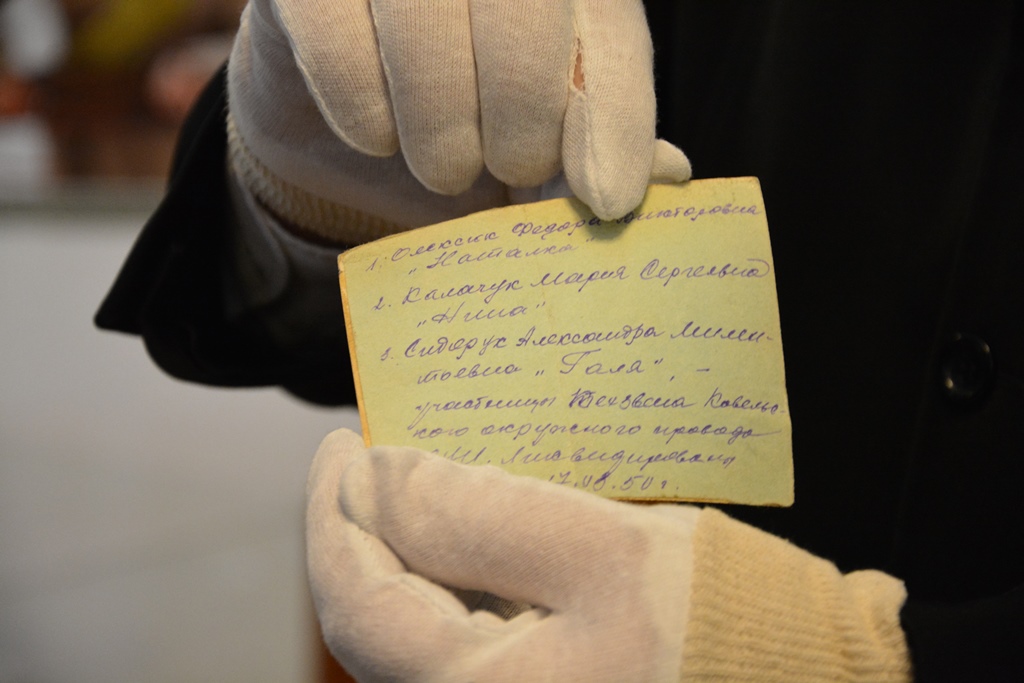 1. Олексюк Федора Викторовна
„Наталка“
2. Калачук Мария Сергеевна
„Нина“
3. Сидорук Александра Мими-
тоевна „Галя“, –
участницы Техзвена Ковельс-
кого окружного провода
Ликвидированы
17.03.50 г.